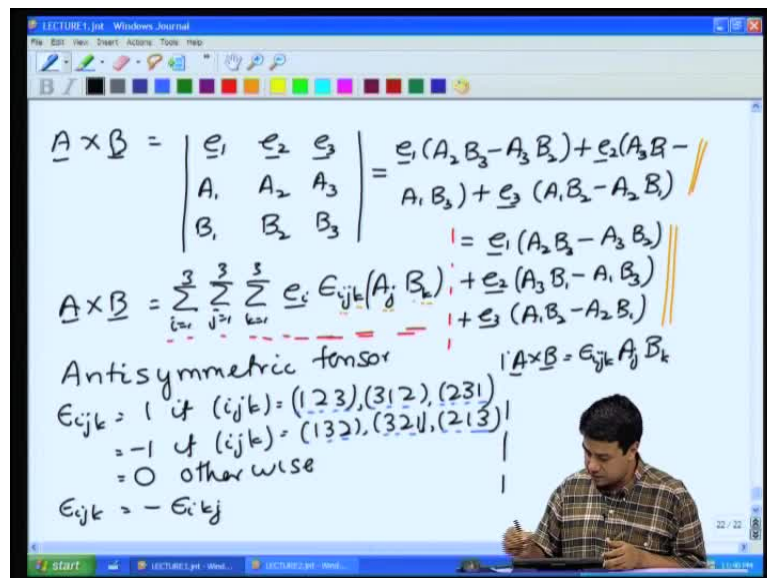 LECTURE1.jnt - Windows Journal
File Edit View Insert Actions Tools Help
B I
A × B = | e₁ e₂ e₃ | = e₁(A₂B₃-A₃B₂)+e₂(A₃B₁-
A₁ A₂ A₃ A₁B₃)+e₃(A₁B₂-A₂B₁)
B₁ B₂ B₃
= e₁(A₂B₃-A₃B₂)
+e₂(A₃B₁-A₁B₃)
+e₃(A₁B₂-A₂B₁)
A × B = 3∑i=1 3∑j=1 3∑k=1 eᵢ ϵijk(Aj Bk)
A×B = ϵijk Aj Bk
Antisymmetric tensor
ϵijk = 1 if (ijk)=(123),(312),(231)
=-1 if (ijk)=(132),(321),(213)
=0 otherwise
ϵijk = -ϵikj
22 / 22
start
LECTURE1.jnt - Wind...
LECTURE2.jnt - Wind...